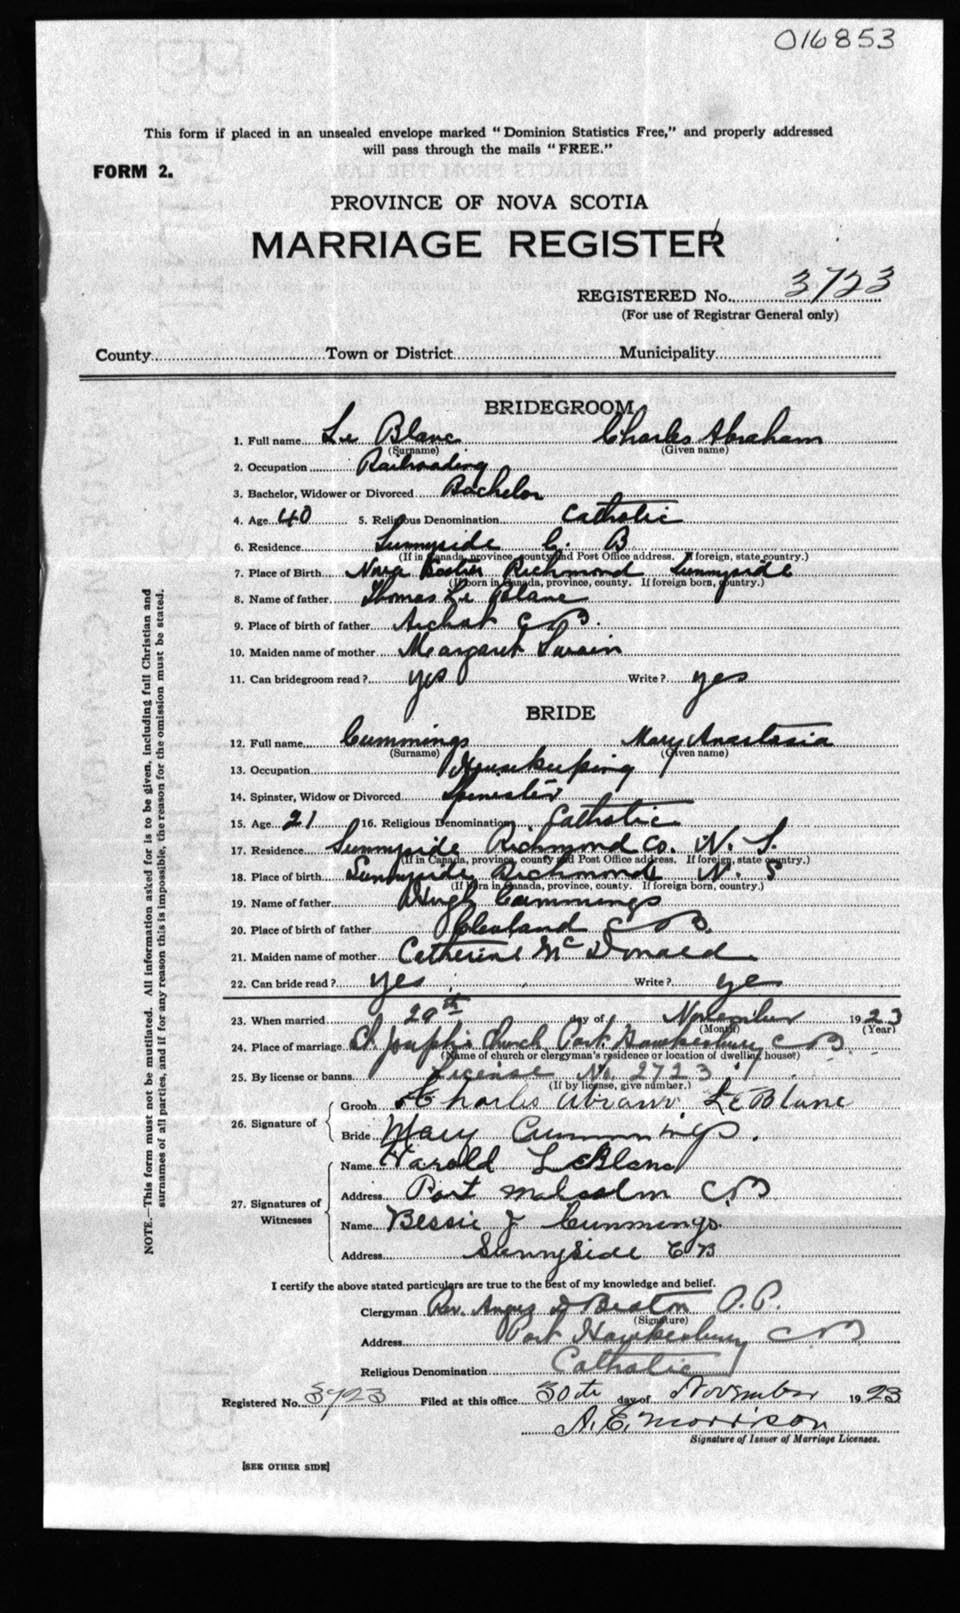 016853
This form if placed in an unsealed envelope marked "Dominion Statistics Free," and properly addressed
will pass through the mails "FREE."
FORM 2.
PROVINCE OF NOVA SCOTIA
MARRIAGE REGISTER
REGISTERED No. 3723
(For use of Registrar General only)
County Town or District Municipality
BRIDEGROOM
1. Full name Le Blanc Charles Abraham
(Surname) (Given name)
2. Occupation Railroading
3. Bachelor, Widower or Divorced Bachelor
4. Age 40 5. Religious Denomination Catholic
6. Residence Sunnyside C. B
(If in Canada, province, county and Post Office address. If foreign, state country.)
7. Place of Birth Nova Scotia Richmond Sunnyside
(If born in Canada, province, county. If foreign born, country.)
8. Name of father Thomas Le Blanc
9. Place of birth of father Arichat C B.
10. Maiden name of mother Margaret Swain
11. Can bridegroom read? yes Write? yes
BRIDE
12. Full name Cummings Mary Anastasia
(Surname) (Given name)
13. Occupation Housekeeping
14. Spinster, Widow or Divorced Spinster
15. Age 21 16. Religious Denomination Catholic
17. Residence Sunnyside Richmond Co. N. S.
(If in Canada, province, county and Post Office address. If foreign, state country.)
18. Place of birth Sunnyside Richmond N. S
(If born in Canada, province, county. If foreign born, country.)
19. Name of father Hugh Cummings
20. Place of birth of father Cleveland C B.
21. Maiden name of mother Catherine McDonald
22. Can bride read? yes Write? yes
23. When married 29th day of November 1923
(Month) (Year)
24. Place of marriage St. Joseph's Church Port Hawkesbury C B
(Name of church or clergyman's residence or location of dwelling house)
25. By license or banns License No. 2723
(If by license, give number.)
26. Signature of
Groom Charles Abram LeBlanc
Bride Mary Cummings.
27. Signatures of Witnesses
Name Harold LeBlanc
Address Port Malcolm C B
Name Bessie J Cummings
Address Sunnyside C B
I certify the above stated particulars are true to the best of my knowledge and belief.
Clergyman Rev. Angus D Beaton P.P.
(Signature)
Address Port Hawkesbury C B
Religious Denomination Catholic
Registered No. 3723 Filed at this office 30th day of November 1923
A.E. Morrison
Signature of Issuer of Marriage Licenses.
[SEE OTHER SIDE]
NOTE.—This form must not be mutilated. All information asked for is to be given, including full Christian and
surnames of all parties, and if for any reason this is impossible, the reason for the omission must be stated.